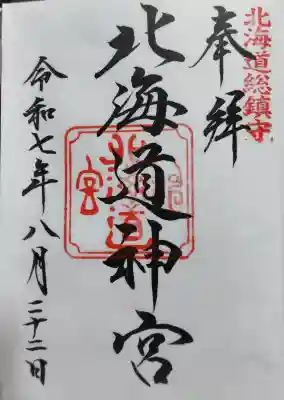 北海道総鎮守
奉拝
北海道神宮
北海道神宮
令和七年八月二十二日